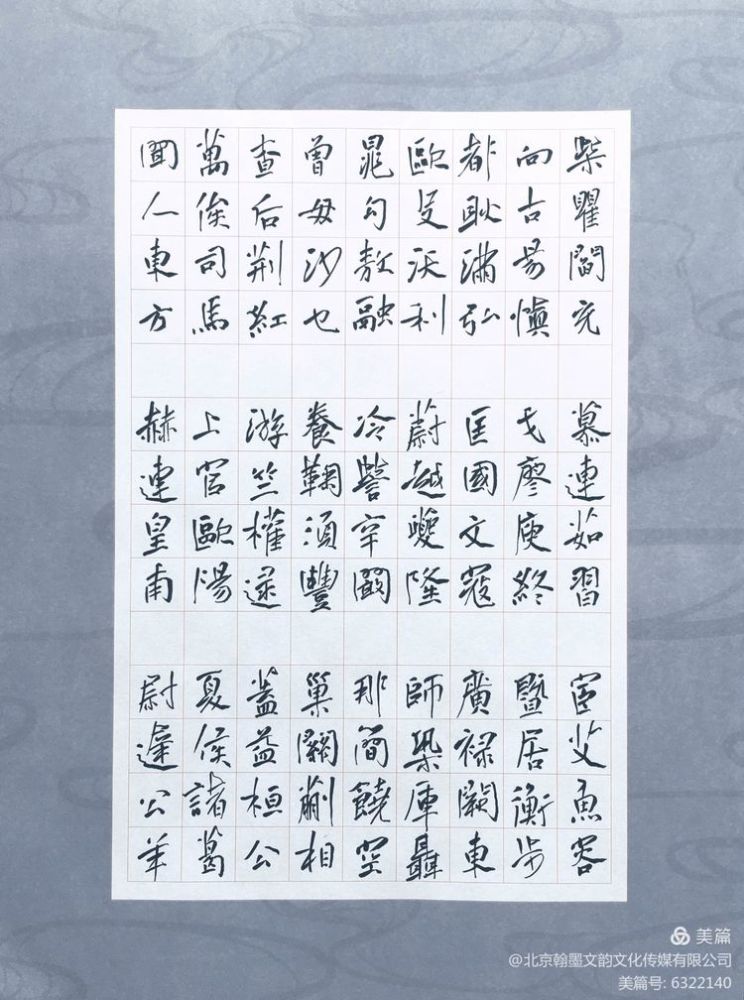 柴瞿閻充 慕連茹習 宦艾魚容
向古易慎 戈廖庾終 暨居衡步
都耿滿弘 匡國文寇 廣祿闕東
歐殳沃利 蔚越夔隆 師鞏厙聶
晁勾敖融 冷訾辛闞 那簡饒空
曾毋沙乜 養鞠須豐 巢關蒯相
查后荊紅 游竺權逯 蓋益桓公
萬俟司馬 上官歐陽 夏侯諸葛
聞人東方 赫連皇甫 尉遲公羊
美篇
@北京翰墨文韵文化传媒有限公司
美篇号: 6322140